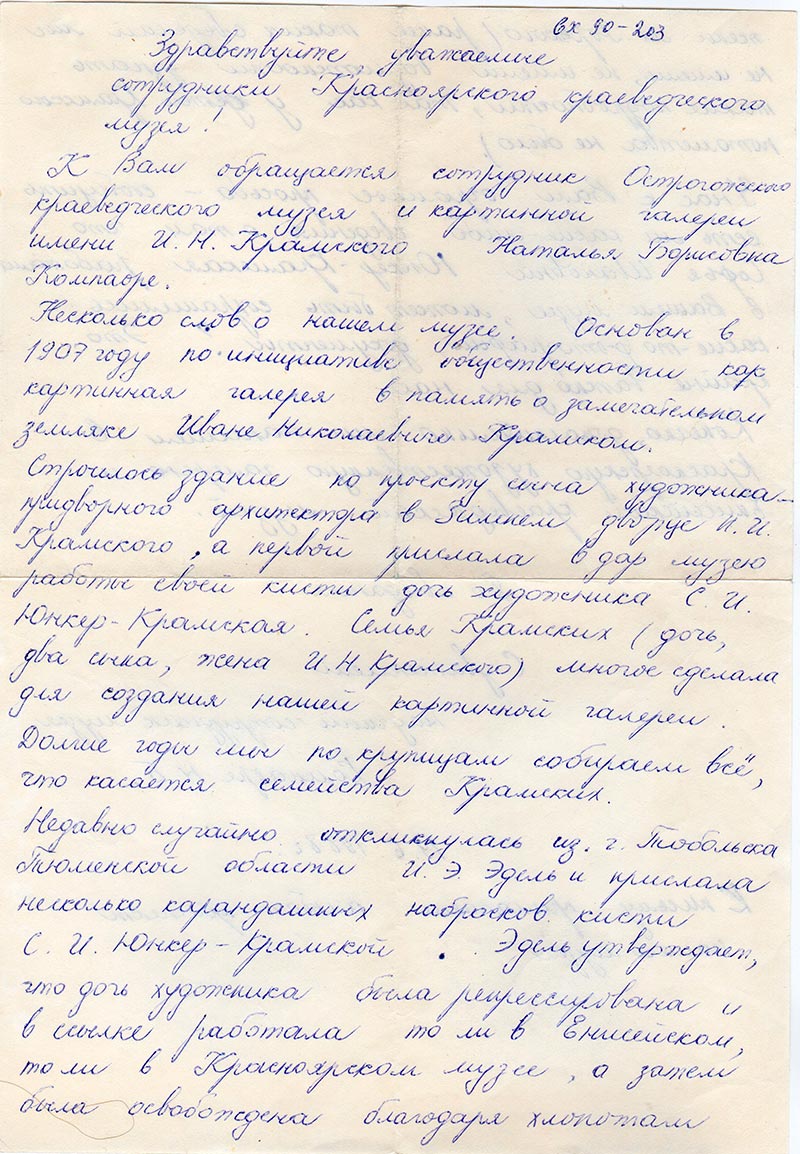 вх 90-203
Здравствуйте, уважаемые
сотрудники Красноярского краеведческого
музея!
К Вам обращается сотрудник Острогожского
краеведческого музея и картинной галереи
имени И. Н. Крамского Наталья Борисовна
Компаоре.
Несколько слов о нашем музее. Основан в
1907 году по инициативе общественности как
картинная галерея в память о замечательном
земляке Иване Николаевиче Крамском.
Строилось здание по проекту сына художника –
придворного архитектора в Зимнем дворце Н. И.
Крамского, а первой прислала в дар музею
работы своей кисти дочь художника С. И.
Юнкер-Крамская. Семья Крамских (дочь,
два сына, жена И. Н. Крамского) многое сделала
для создания нашей картинной галереи.
Долгие годы мы по крупицам собираем всё,
что касается семейства Крамских.
Недавно случайно откликнулась из г. Тобольска
Тюменской области И. Э. Эдель и прислала
несколько карандашных набросков кисти
С. И. Юнкер-Крамской. Эдель утверждает,
что дочь художника была репрессирована и
в ссылке работала то ли в Енисейском,
то ли в Красноярском музее, а затем
была освобождена благодаря хлопотам